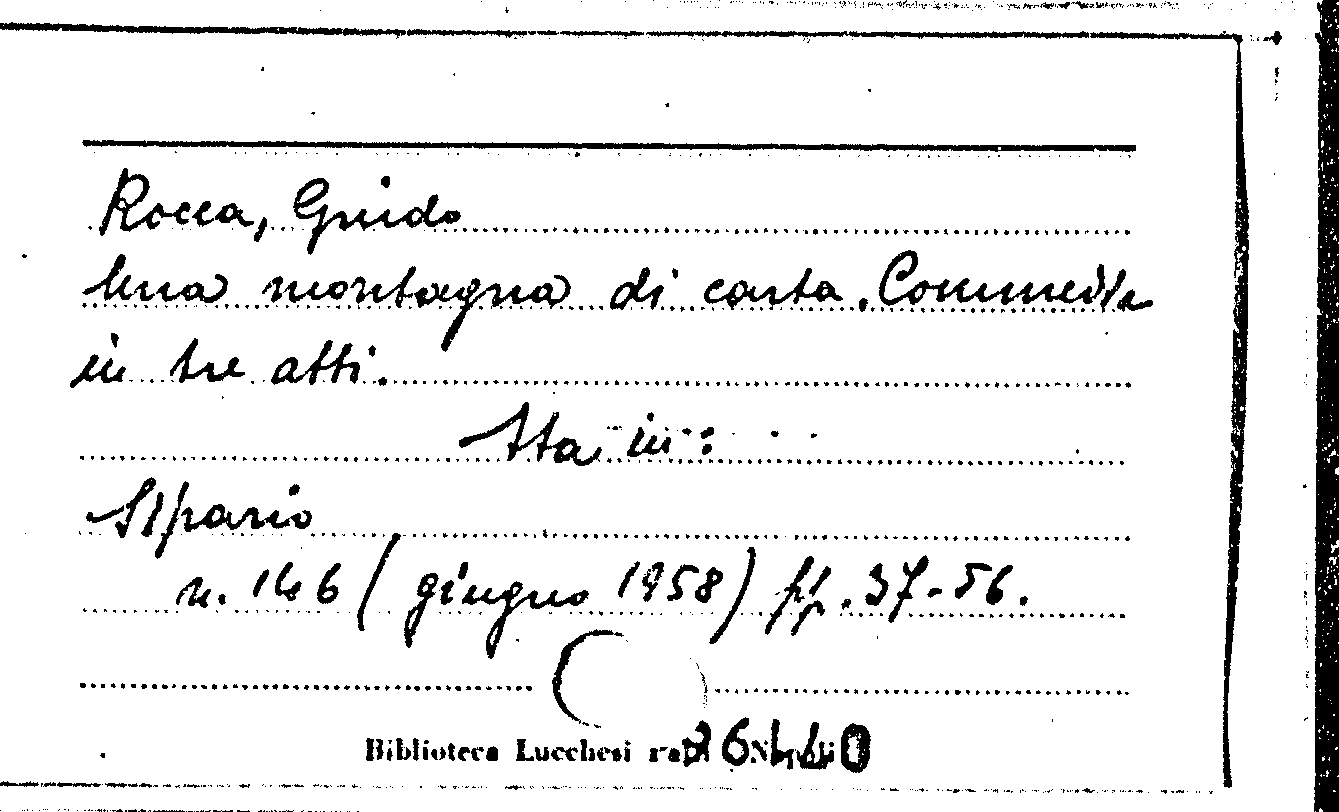 Rocca, Guido
Una montagna di carta. Commedia
in tre atti.
Sta in:
Sipario
n. 146 (giugno 1958) pp. 37-56.
Biblioteca Lucchesi